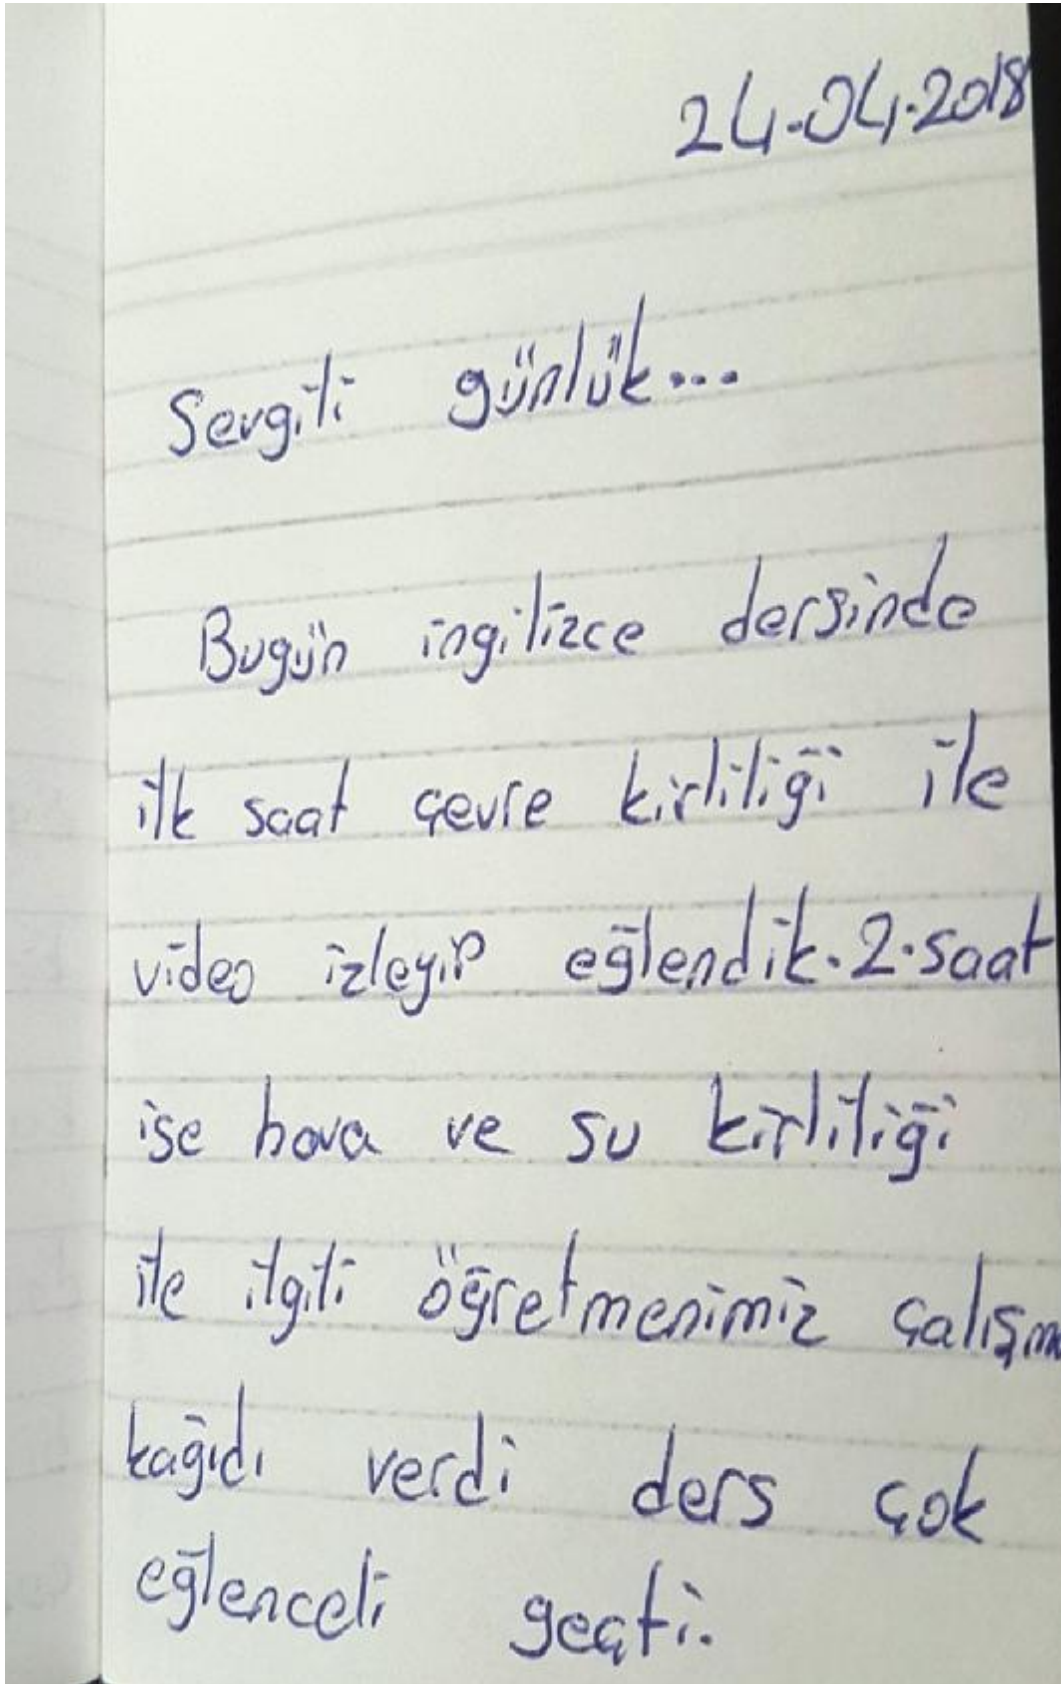 24.04.2018
Sevgili günlük...
Bugün ingilizce dersinde
ilk saat çevre kirliliği ile
video izleyip eğlendik. 2. saat
ise hava ve su kirliliği
ile ilgili öğretmenimiz çalışm
kağıdı verdi ders çok
eğlenceli geçti.